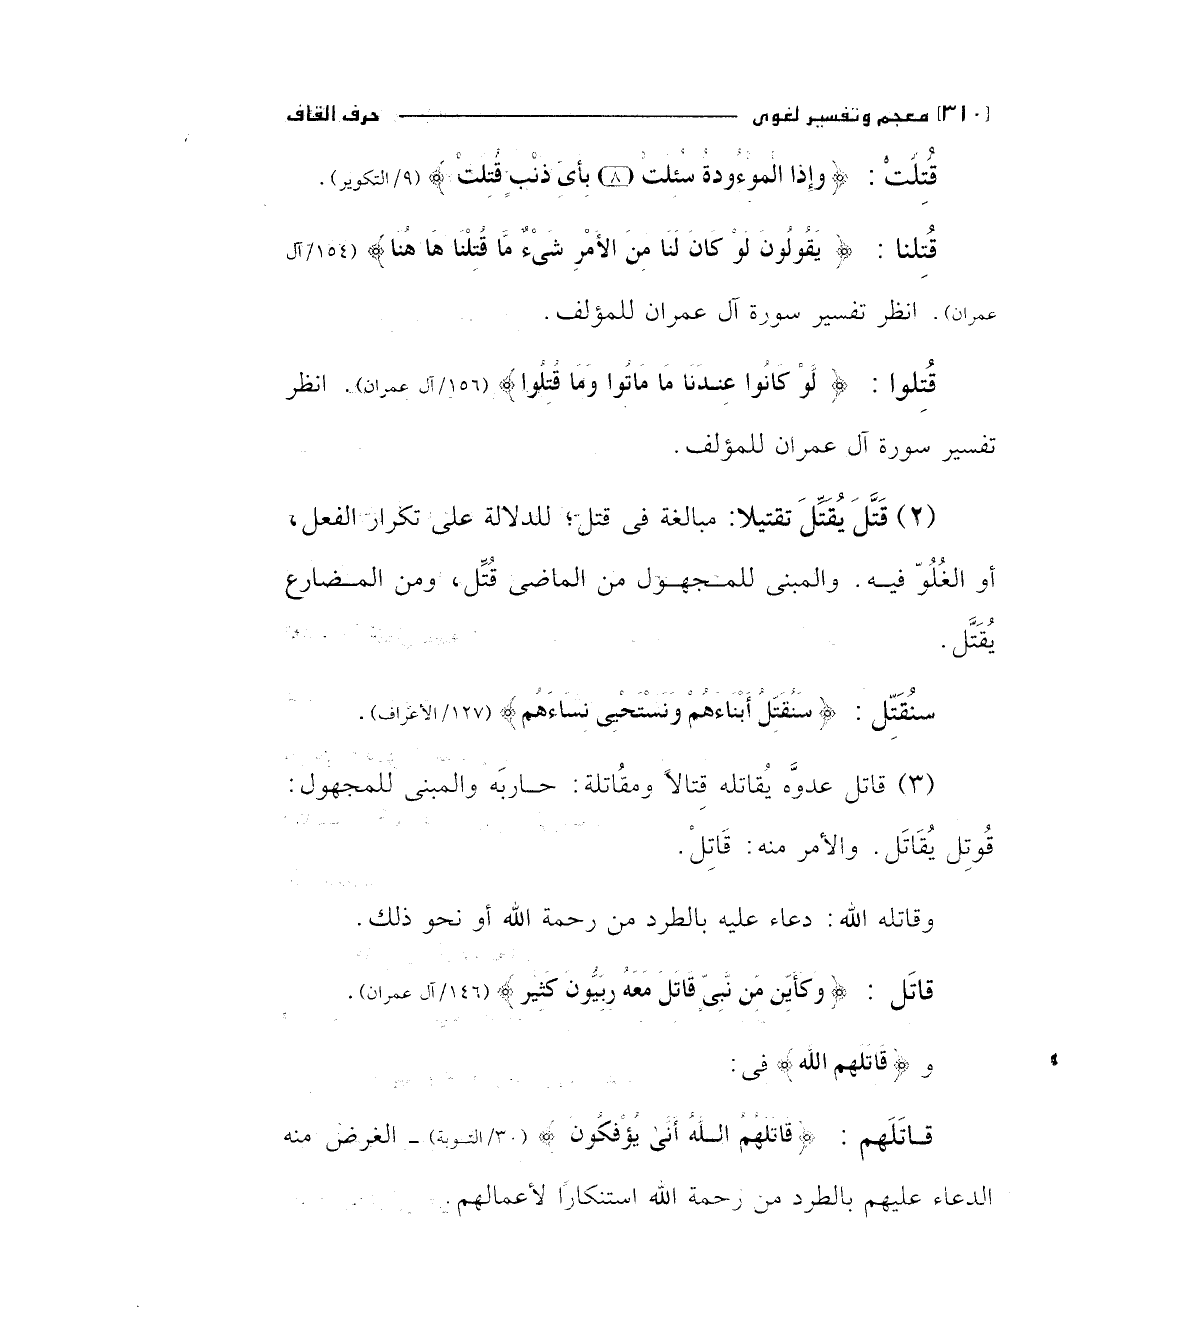 [٣١٠] معجم وتفسير لغوى ــــــ حرف القاف
قُتِلَتْ : ﴿ وإِذا الْمَوْءُودةُ سُئِلتْ (٨) بأىِّ ذنْبٍ قُتِلتْ ﴾ (٩/ التكوير) .
قُتِلنا : ﴿ يَقُولُونَ لَوْ كَانَ لَنَا مِنَ الأَمْرِ شَىْءٌ مَّا قُتِلْنَا هَا هُنَا ﴾ (١٥٤/ آل
عمران) . انظر تفسير سورة آل عمران للمؤلف .
قُتِلوا : ﴿ لَوْ كَانُوا عِندَنَا مَا مَاتُوا وَمَا قُتِلُوا ﴾ (١٥٦/ آل عمران) . انظر
تفسير سورة آل عمران للمؤلف .
(٢) قَتَّلَ يُقَتِّلَ تقتيلا: مبالغة فى قتل؛ للدلالة على تكرار الفعل،
أو الغُلُوّ فيه . والمبنى للمجهول من الماضى قُتِّل، ومن المضارع
يُقَتَّل .
سنُقَتِّل : ﴿ سَنُقَتِّلُ أَبْنَاءَهُمْ وَنَسْتَحْيِى نِسَاءَهُم ﴾ (١٢٧/ الأعراف) .
(٣) قاتل عدوَّه يُقاتله قِتالاً ومقُاتلة: حاربَه والمبنى للمجهول:
قُوتِل يُقَاتَل . والأمر منه: قَاتِلْ .
وقاتله الله: دعاء عليه بالطرد من رحمة الله أو نحو ذلك .
قاتَل : ﴿ وكَأَيِّن مِّن نَّبِىٍّ قَاتَلَ مَعَهُ رِبِّيُّونَ كَثِيْر ﴾ (١٤٦/ آل عمران) .
و ﴿ قَاتَلَهم الله ﴾ فى:
قاتَلَهم : ﴿ قَاتَلَهُمُ اللهُ أَنَّىٰ يُؤْفَكُونَ ﴾ (٣٠/ التوبة) ـ الغرض منه
الدعاء عليهم بالطرد من رحمة الله استنكارًا لأعمالهم .